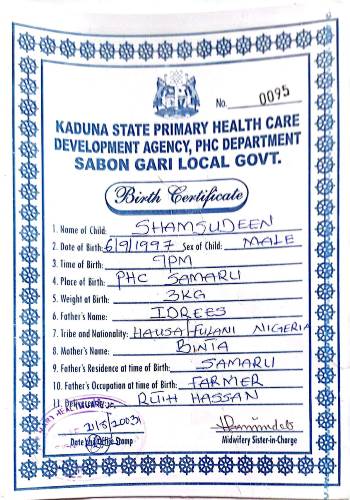 No. 0095
KADUNA STATE PRIMARY HEALTH CARE
DEVELOPMENT AGENCY, PHC DEPARTMENT
SABON GARI LOCAL GOVT.
Birth Certificate
1. Name of Child: SHAMSUDEEN
2. Date of Birth: 6/9/1997 Sex of Child: MALE
3. Time of Birth: 9PM
4. Place of Birth: PHC SAMARU
5. Weight at Birth: 3KG
6. Father's Name: IDREES
7. Tribe and Nationality: HAUSA/FULANI NIGERIA
8. Mother's Name: BINTA
9. Father's Residence at time of Birth: SAMARU
10. Father's Occupation at time of Birth: FARMER
11. RUTH HASSAN
Date and Office Stamp
Midwifery Sister-in-Charge